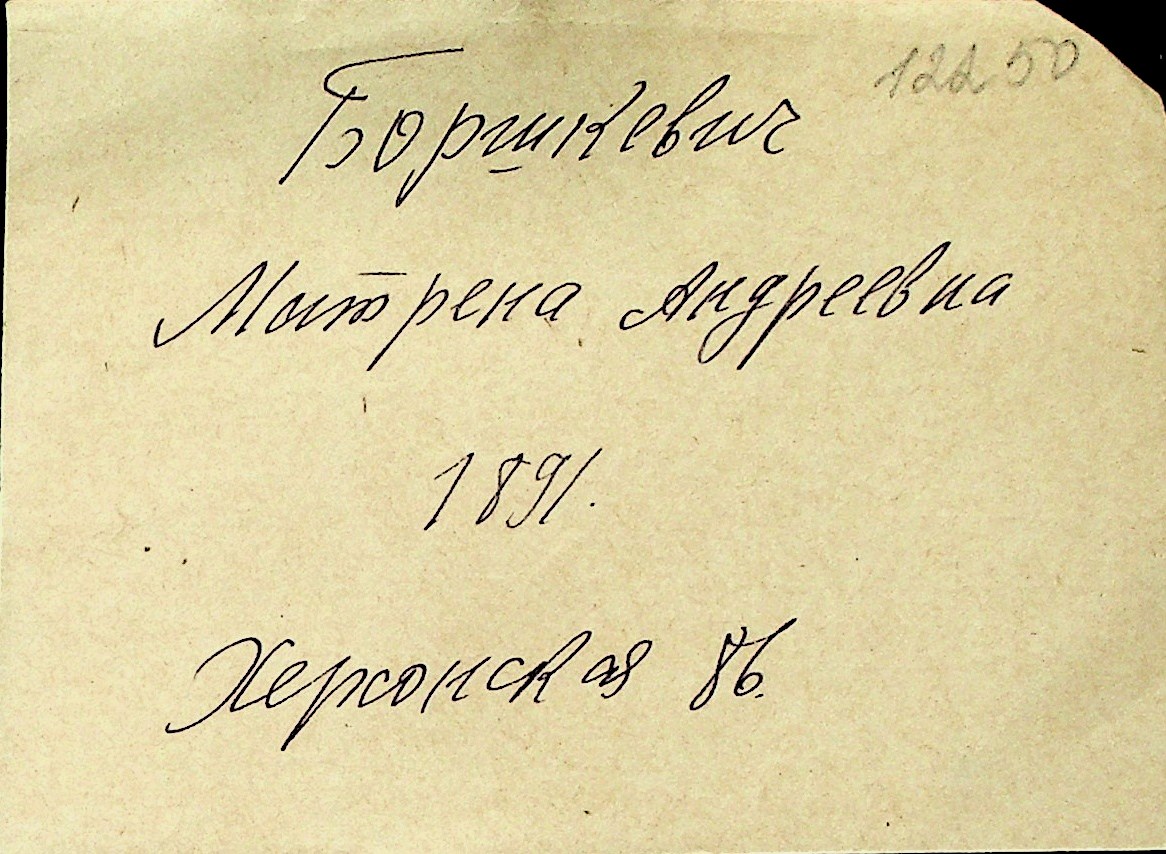 12250
Боршкевич
Матрена Андреевна
1891.
Херсонская 86.